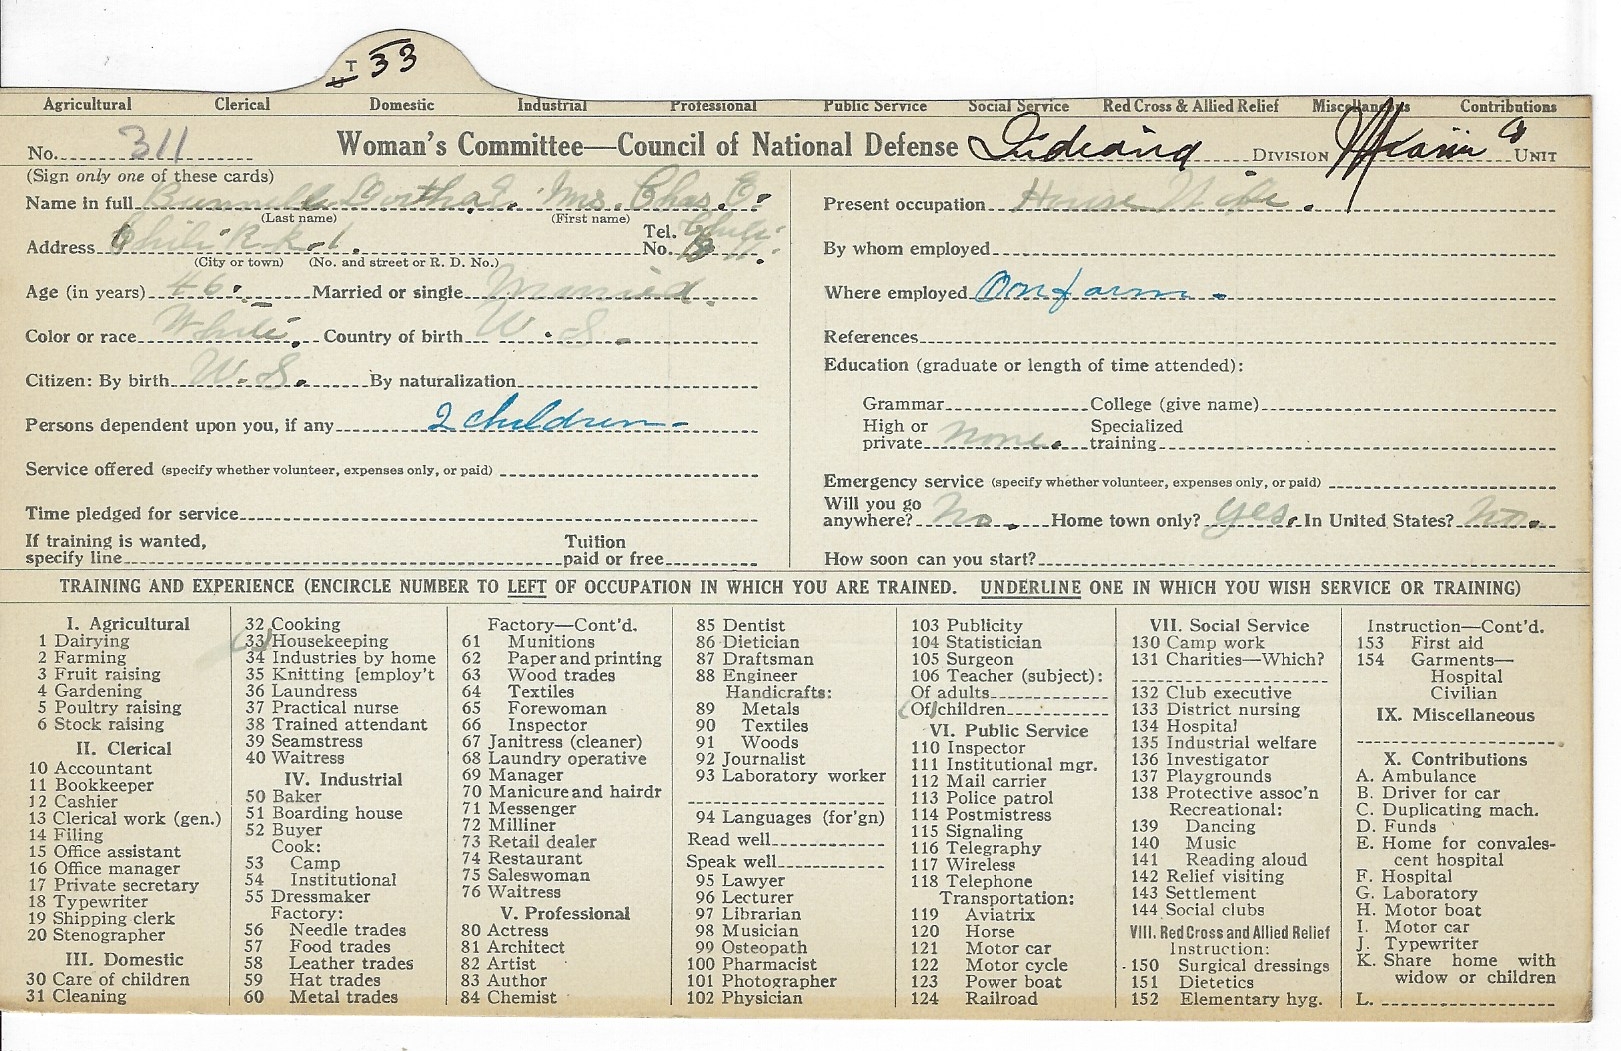 T 33
Agricultural Clerical Domestic Industrial Professional Public Service Social Service Red Cross & Allied Relief Miscellaneous Contributions
No. 311 Woman's Committee—Council of National Defense Indiana DIVISION Miami Co UNIT
(Sign only one of these cards)
Name in full Mrs. Chas. E.
(Last name) (First name)
Address Chili R.R. 1. Tel. No. Chili
(City or town) (No. and street or R. D. No.)
Age (in years) 46. Married or single Married.
Color or race White. Country of birth U. S.
Citizen: By birth U. S. By naturalization
Persons dependent upon you, if any 2 children
Service offered (specify whether volunteer, expenses only, or paid)
Time pledged for service
If training is wanted, specify line Tuition paid or free
Present occupation House Wife.
By whom employed
Where employed On farm
References
Education (graduate or length of time attended):
Grammar College (give name)
High or private none. Specialized training
Emergency service (specify whether volunteer, expenses only, or paid)
Will you go anywhere? No. Home town only? Yes. In United States? No.
How soon can you start?
TRAINING AND EXPERIENCE (ENCIRCLE NUMBER TO LEFT OF OCCUPATION IN WHICH YOU ARE TRAINED. UNDERLINE ONE IN WHICH YOU WISH SERVICE OR TRAINING)
I. Agricultural
1 Dairying
2 Farming
3 Fruit raising
4 Gardening
5 Poultry raising
6 Stock raising
II. Clerical
10 Accountant
11 Bookkeeper
12 Cashier
13 Clerical work (gen.)
14 Filing
15 Office assistant
16 Office manager
17 Private secretary
18 Typewriter
19 Shipping clerk
20 Stenographer
III. Domestic
30 Care of children
31 Cleaning
32 Cooking
33 Housekeeping
34 Industries by home
35 Knitting [employ't
36 Laundress
37 Practical nurse
38 Trained attendant
39 Seamstress
40 Waitress
IV. Industrial
50 Baker
51 Boarding house
52 Buyer
Cook:
53 Camp
54 Institutional
55 Dressmaker
Factory:
56 Needle trades
57 Food trades
58 Leather trades
59 Hat trades
60 Metal trades
Factory—Cont'd.
61 Munitions
62 Paper and printing
63 Wood trades
64 Textiles
65 Forewoman
66 Inspector
67 Janitress (cleaner)
68 Laundry operative
69 Manager
70 Manicure and hairdr
71 Messenger
72 Milliner
73 Retail dealer
74 Restaurant
75 Saleswoman
76 Waitress
V. Professional
80 Actress
81 Architect
82 Artist
83 Author
84 Chemist
85 Dentist
86 Dietician
87 Draftsman
88 Engineer
Handicrafts:
89 Metals
90 Textiles
91 Woods
92 Journalist
93 Laboratory worker
94 Languages (for'gn)
Read well
Speak well
95 Lawyer
96 Lecturer
97 Librarian
98 Musician
99 Osteopath
100 Pharmacist
101 Photographer
102 Physician
103 Publicity
104 Statistician
105 Surgeon
106 Teacher (subject):
Of adults
Of children
VI. Public Service
110 Inspector
111 Institutional mgr.
112 Mail carrier
113 Police patrol
114 Postmistress
115 Signaling
116 Telegraphy
117 Wireless
118 Telephone
Transportation:
119 Aviatrix
120 Horse
121 Motor car
122 Motor cycle
123 Power boat
124 Railroad
VII. Social Service
130 Camp work
131 Charities—Which?
132 Club executive
133 District nursing
134 Hospital
135 Industrial welfare
136 Investigator
137 Playgrounds
138 Protective assoc'n
Recreational:
139 Dancing
140 Music
141 Reading aloud
142 Relief visiting
143 Settlement
144 Social clubs
VIII. Red Cross and Allied Relief
Instruction:
150 Surgical dressings
151 Dietetics
152 Elementary hyg.
Instruction—Cont'd.
153 First aid
154 Garments—
Hospital
Civilian
IX. Miscellaneous
X. Contributions
A. Ambulance
B. Driver for car
C. Duplicating mach.
D. Funds
E. Home for convales-
cent hospital
F. Hospital
G. Laboratory
H. Motor boat
I. Motor car
J. Typewriter
K. Share home with
widow or children
L.